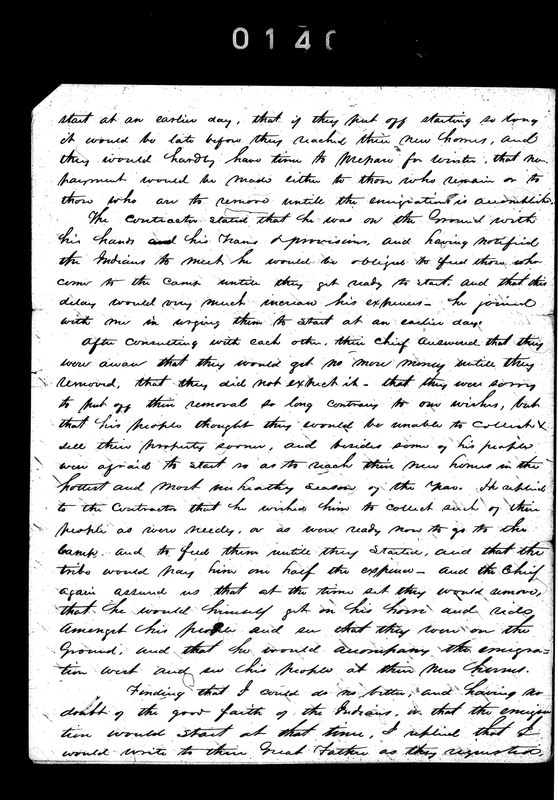 0140
start at an earlier day, that if they put off starting so long
it would be late before they reached their new homes, and
they would hardly have time to prepare for winter, that no
payment would be made either to those who remain or to
those who are to remove untill the emigration is accomplished.
The contractor stated that he was on the Ground with
his hands and his Teams & provisions, and having notified
the Indians to meet he would be obliged to feed those who
come to the Camp untill they get ready to start, and that this
delay would very much increase his expences - he joined
with me in urging them to start at an earlier day.
After consulting with each other, their chief answered that they
were aware that they would get no more money untill they
removed, that they did not expect it - that they were sorry
to put off their removal so long contrary to our wishes, but
that his people thought they would be unable to collect &
sell their property sooner, and besides some of his people
were afraid to start so as to reach their new homes in the
hottest and most unhealthy season of the year. He replied
to the Contractor that he wished him to collect such of their
people as were needy, or as were ready now to go to the
Camp, and to feed them untill they started, and that the
tribe would pay him one half the expence - and the Chief
again assured us that at the time set they would remove,
that he would himself get on his horse and ride
amongst his people and see that they were on the
Ground, and that he would accompany the emigra-
tion west and see his people at their new homes.
Finding that I could do no better, and having no
doubt of the good faith of the Indians, or that the emigra
tion would start at that time, I replied that I
would write to their Great Father as they requested,